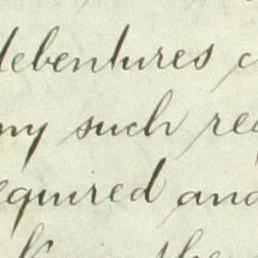 debentures
any such
required and
the